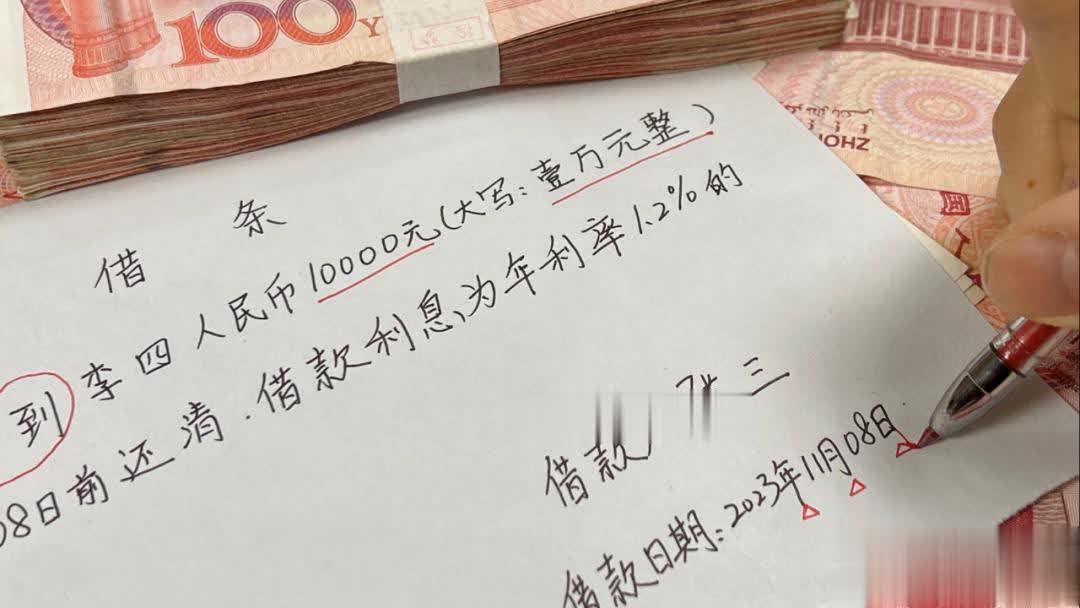 100 Y
ZHON
国人
借 条
到 李四人民币10000元(大写:壹万元整)
08日前还清.借款利息,为年利率1.2%的
借款 三
借款日期:2023年11月08日.